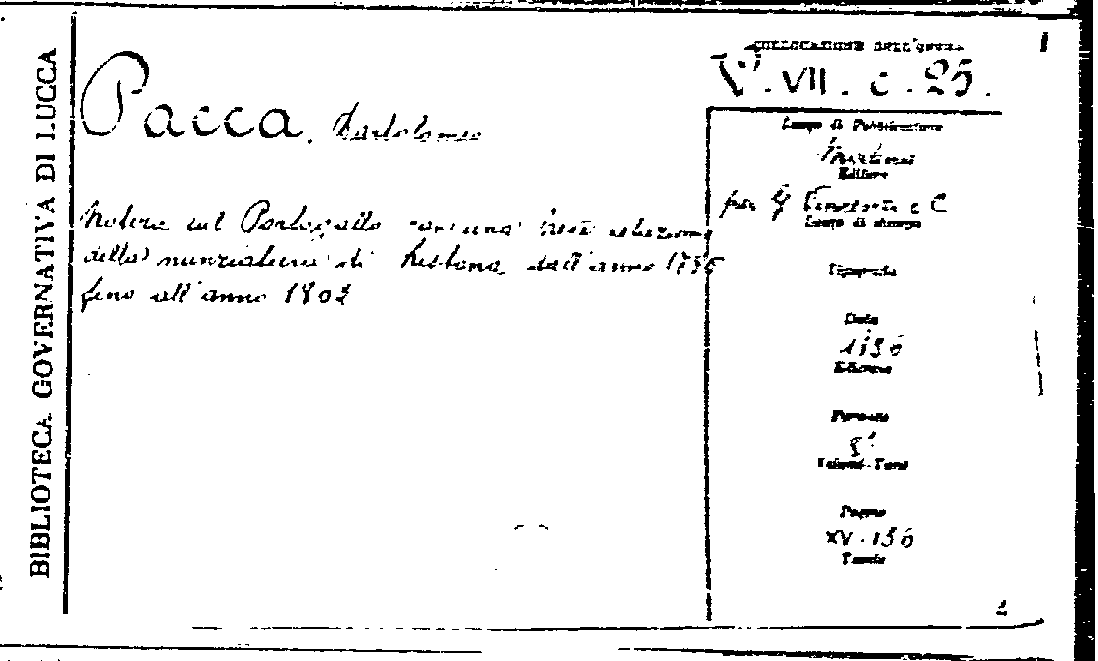 BIBLIOTECA GOVERNATIVA DI LUCCA
Pacca, Bartolomeo
Notizie sul Portogallo con una breve relazione
della nunziatura di Lisbona dall'anno 1795
fino all'anno 1802
COLLOCAZIONE DELL'OPERA
V. VII. c. 25.
Luogo di Pubblicazione
Editore
per G
e C
Luogo di stampa
Tipografo
Data
1836
Edizione
Formato
8°
Volumi - Tomi
Pagine
XV-136
Tavole